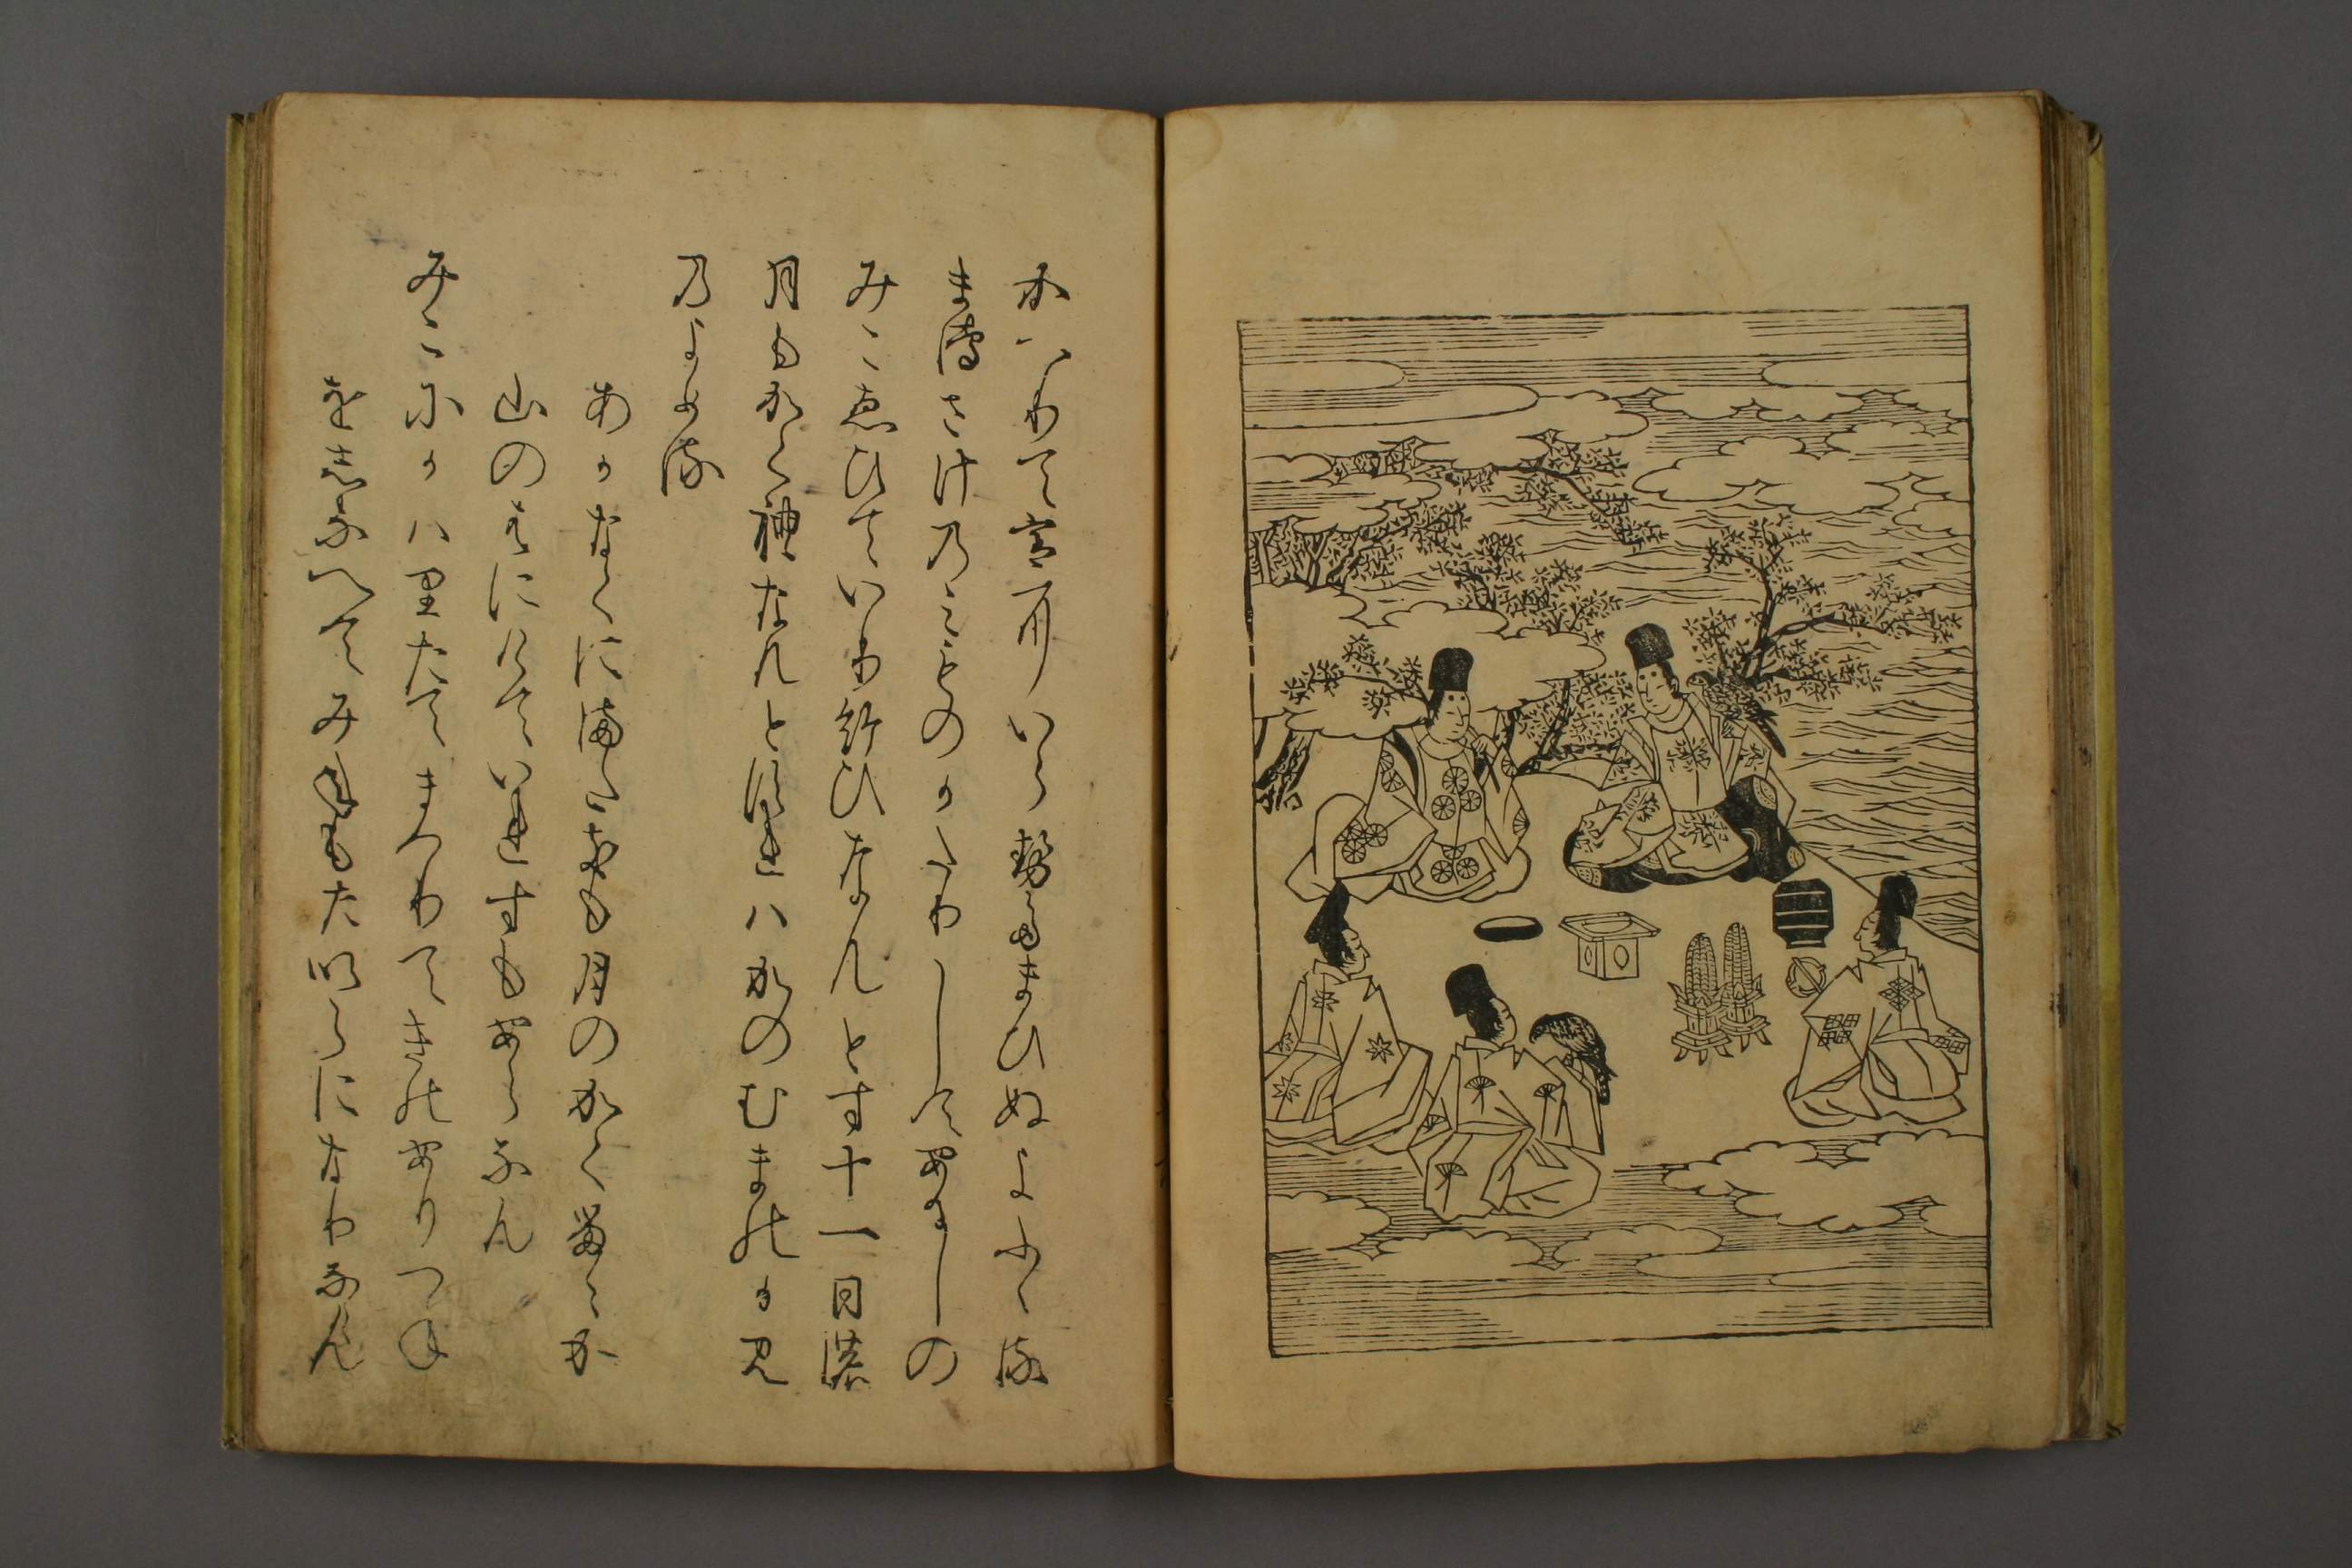 かへりて宮にいらせたまひぬよふくる
まてさけのみものかたりしてあるしの
みこゑひていり給ひなんとす十一日の
月もかくれなんとすれはかのむまのかみ
のよめる
あかなくにまたきも月のかくるゝか
山のはにけていれすもあらなん
みこにかはりたてまつりてきのありつね
をしなへてみねもたひらになりなゝん